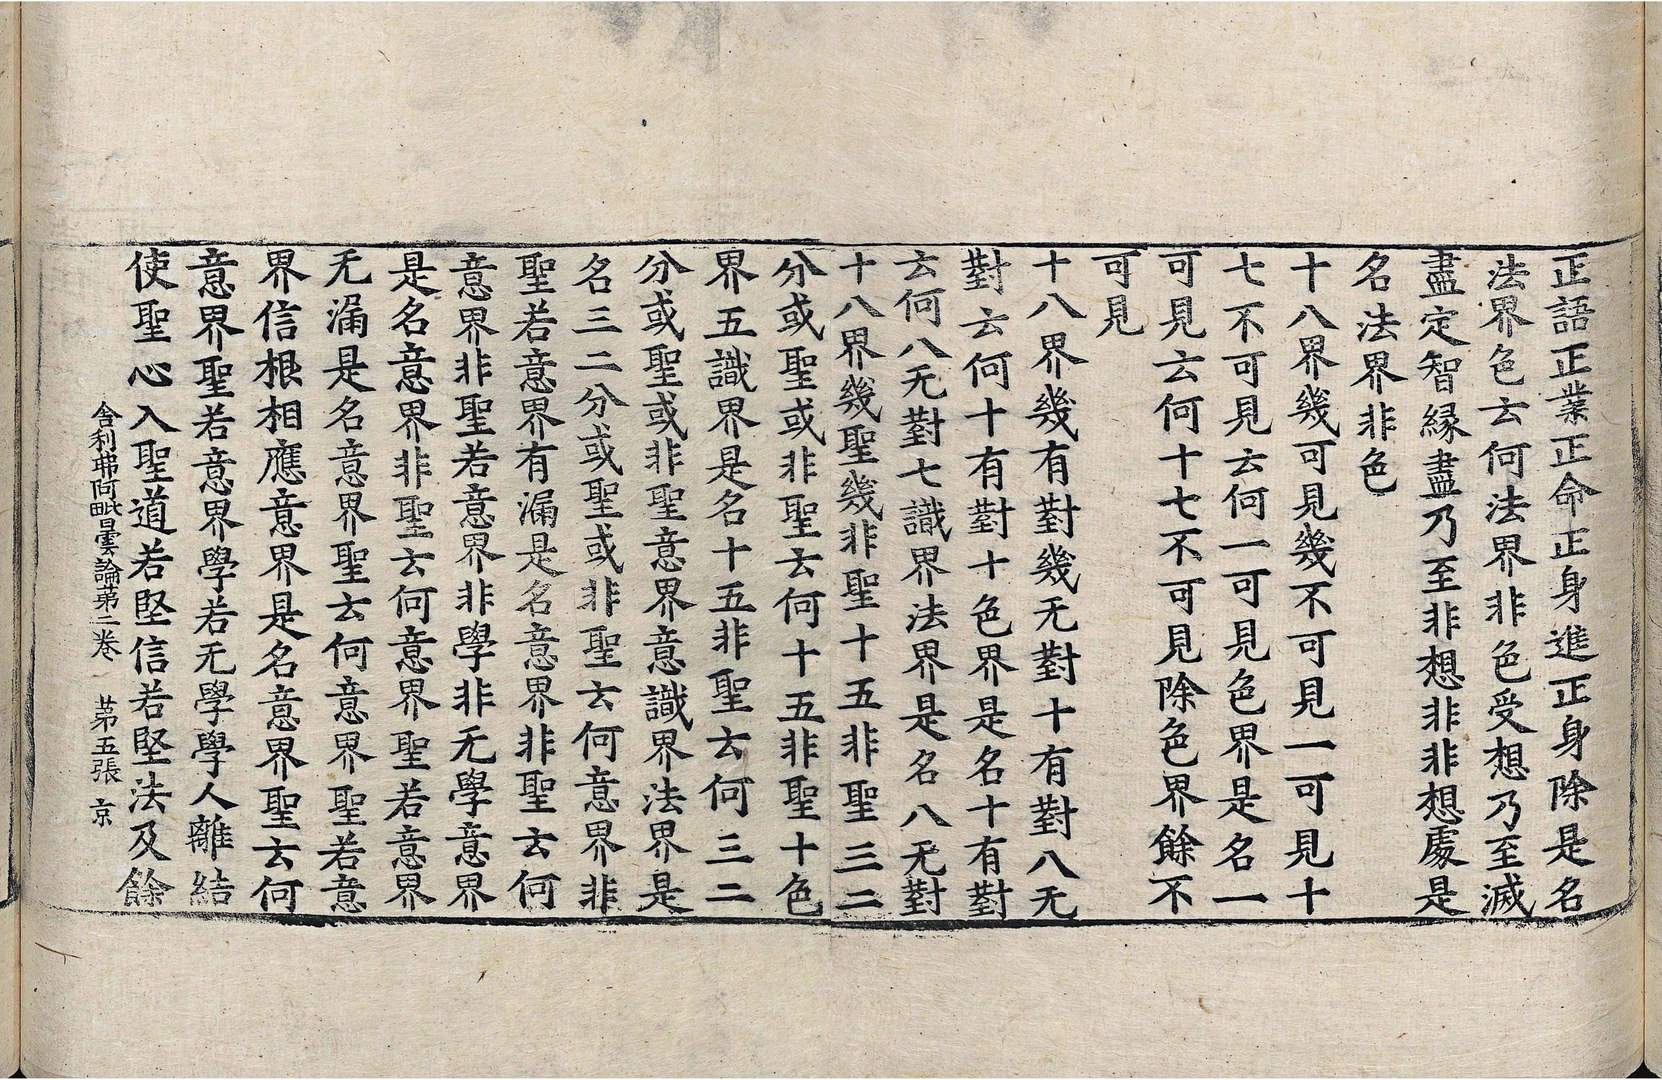 正語正業正命正身進正身除是名
法界色云何法界非色受想乃至滅
盡定智緣盡乃至非想非非想處是
名法界非色
十八界幾可見幾不可見一可見十
七不可見云何一可見色界是名一
可見云何十七不可見除色界餘不
可見
十八界幾有對幾无對十有對八无
對云何十有對十色界是名十有對
云何八无對七識界法界是名八无對
十八界幾聖幾非聖十五非聖三二
分或聖或非聖云何十五非聖十色
界五識界是名十五非聖云何三二
分或聖或非聖意界意識界法界是
名三二分或聖或非聖云何意界非
聖若意界有漏是名意界非聖云何
意界非聖若意界非學非无學意界
是名意界非聖云何意界聖若意界
无漏是名意界聖云何意界聖若意
界信根相應意界是名意界聖云何
意界聖若意界學若无學學人離結
使聖心入聖道若堅信若堅法及餘
舍利弗阿毗曇論第二卷 苐五張 京